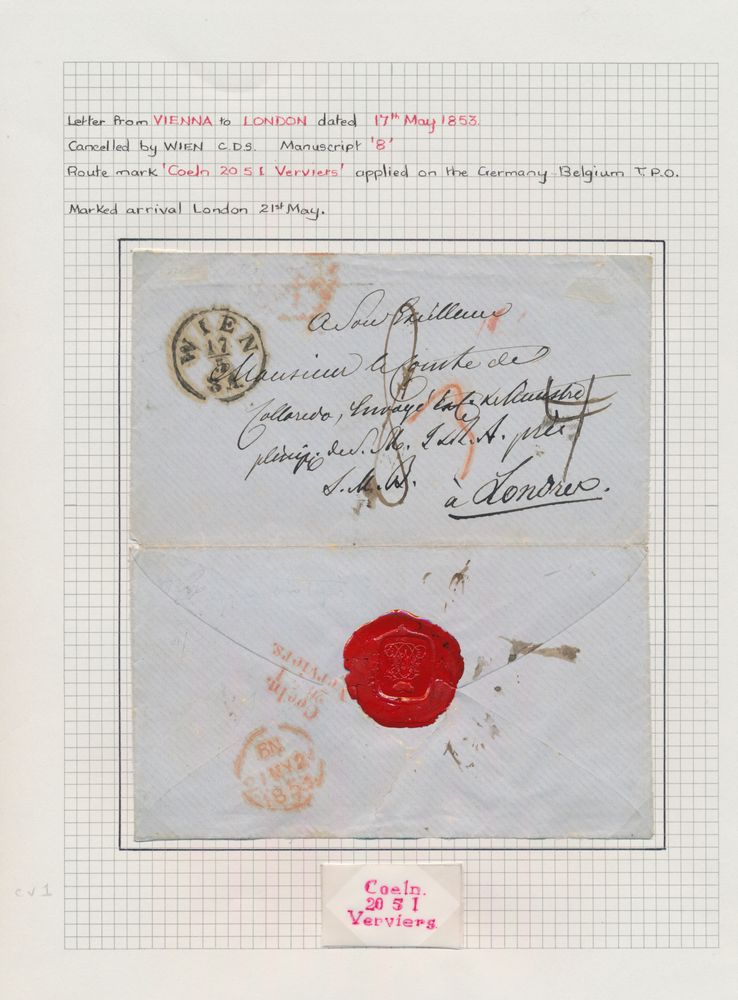 Letter from VIENNA to LONDON dated 17th May 1853.
Cancelled by WIEN C.D.S. Manuscript '8'
Route mark 'Coeln 20 5 I Verviers' applied on the Germany-Belgium T.P.O.
Marked arrival London 21st May.
WIEN
17
5
A Son Excellence
Monsieur le Comte de
Colloredo, Envoyé Ext. & Ministre
plénip. de S. M. I. & R. A. près
S. M. B.
à Londres.
8
3
4
Coeln
Verviers.
BN
21 MY 21
1853
cv1
Coeln.
20 5 I
Verviers